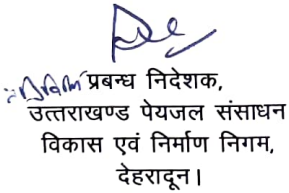 प्रबन्ध निदेशक,
उत्तराखण्ड पेयजल संसाधन
विकास एवं निर्माण निगम,
देहरादून।